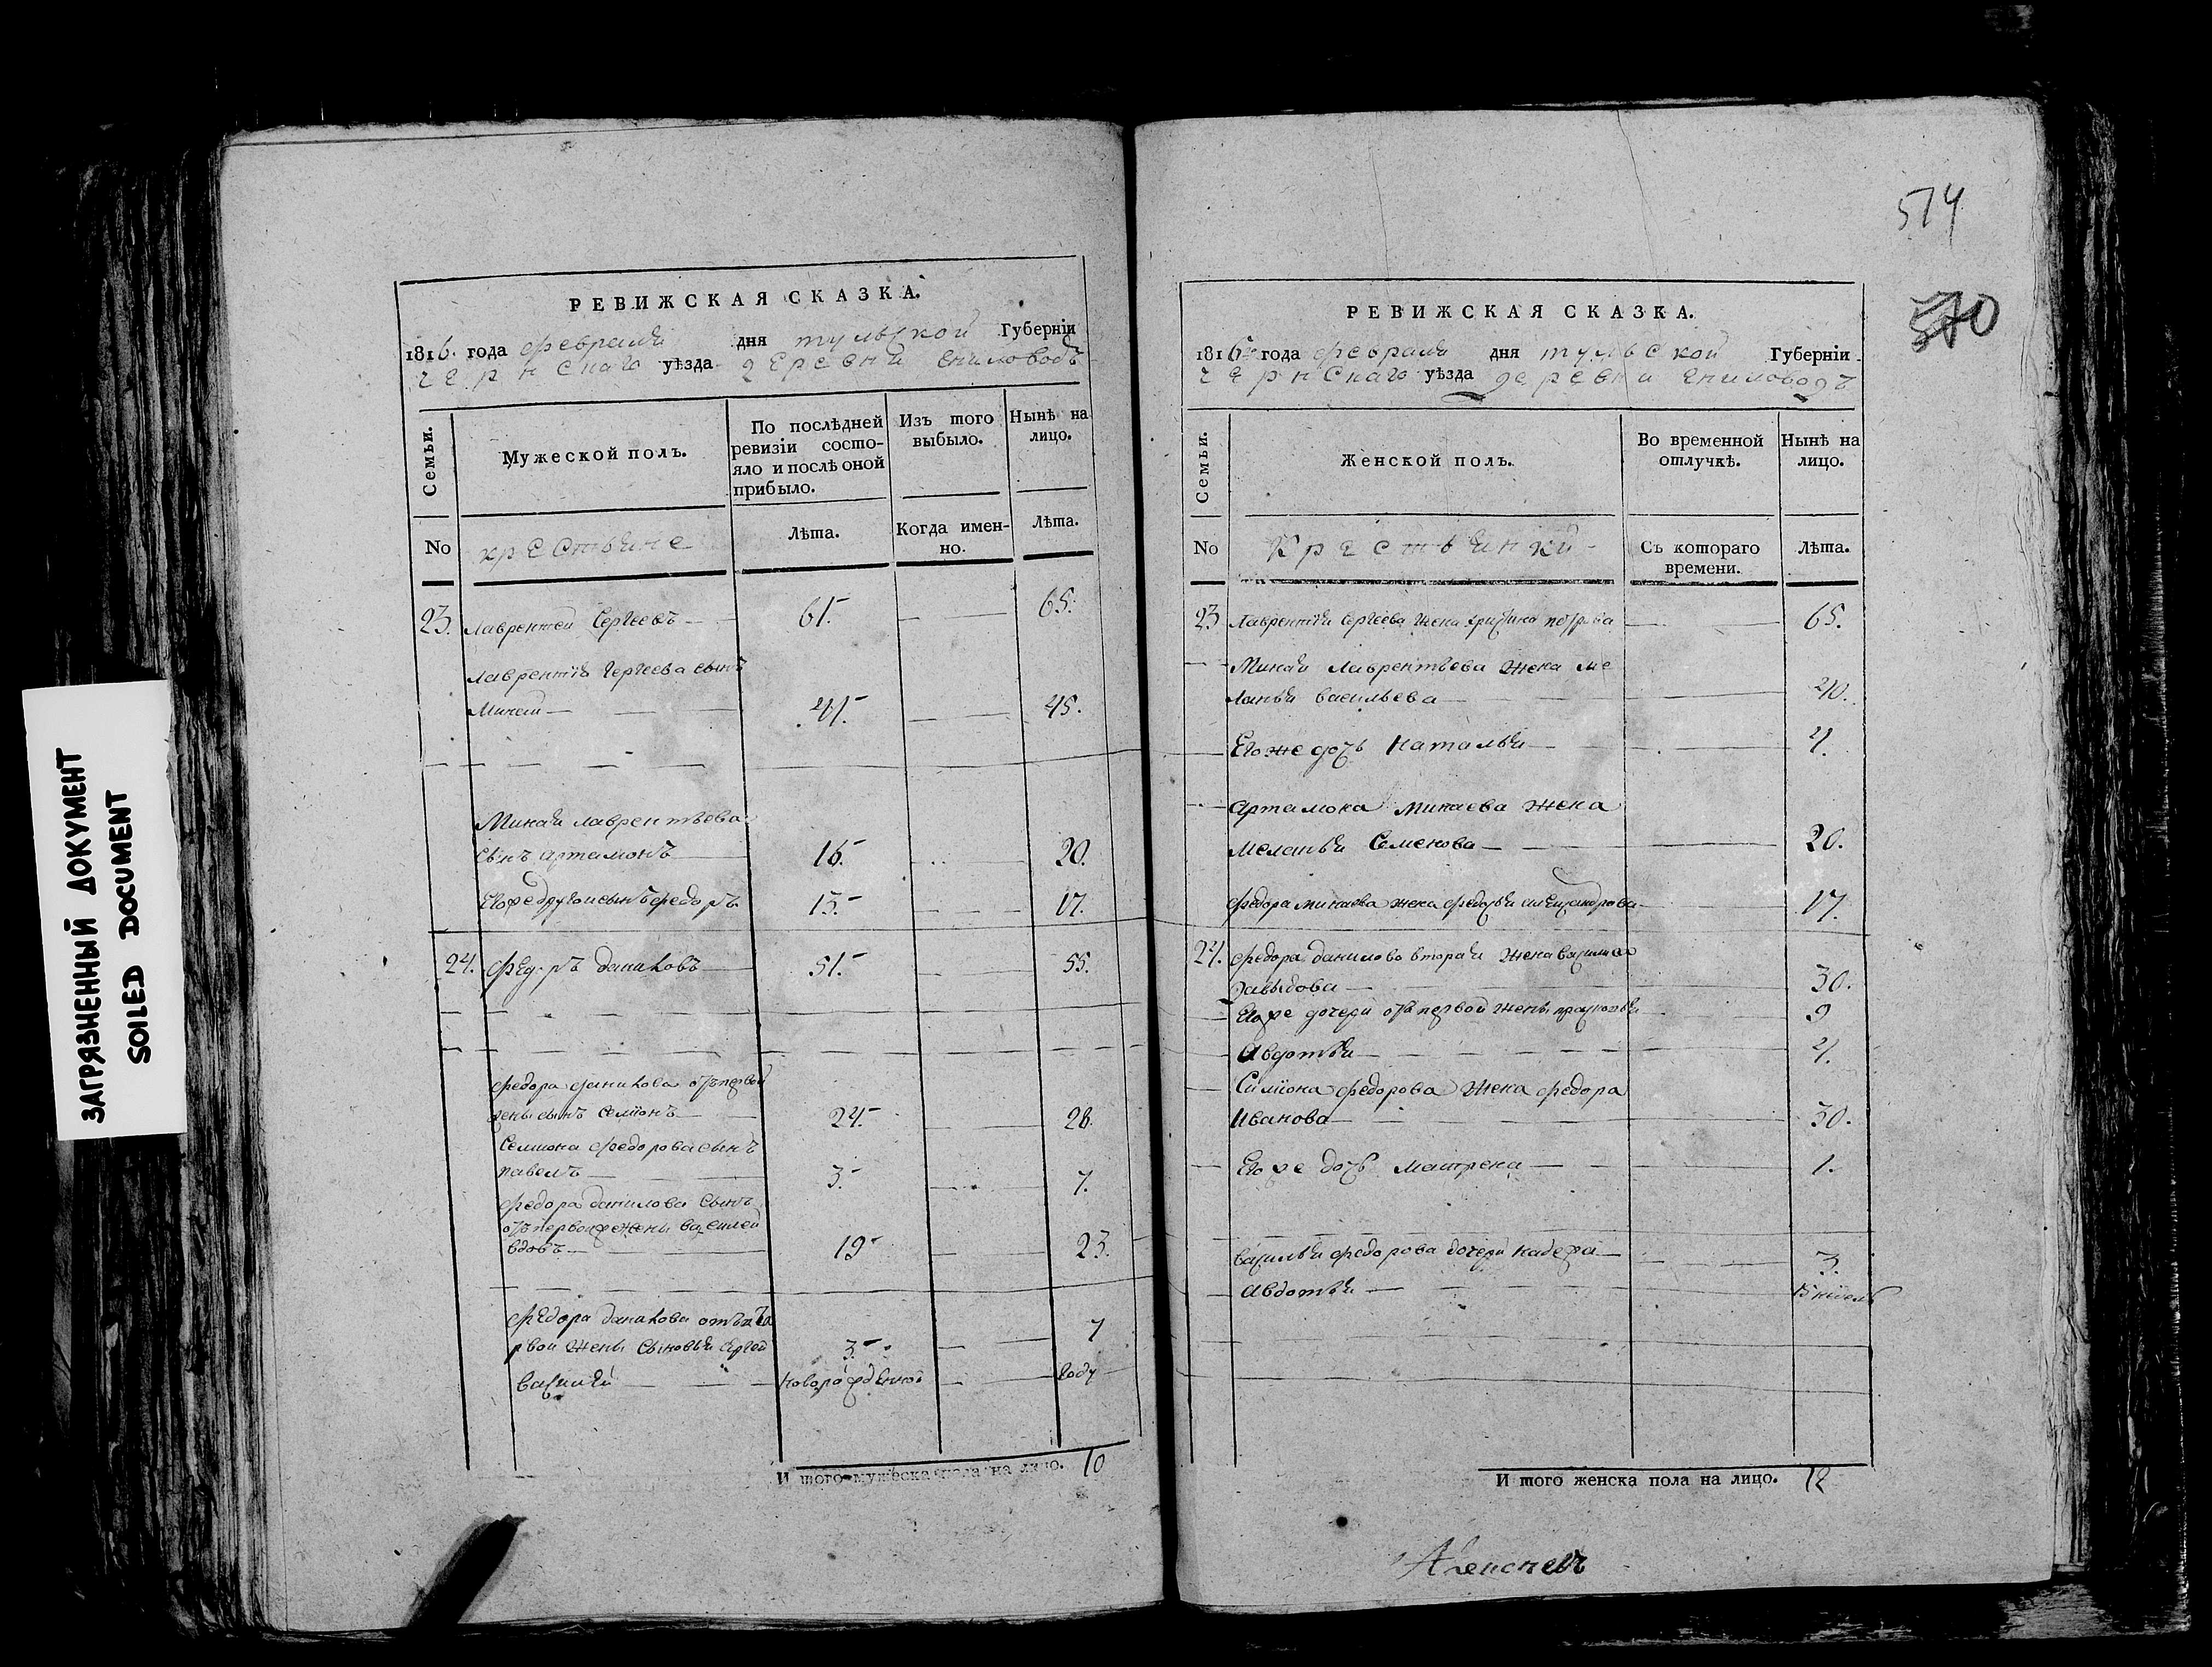 ЗАГРЯЗНЕННЫЙ ДОКУМЕНТ
SOILED DOCUMENT
РЕВИЖСКАЯ СКАЗКА.
1816. года февраля дня тульской Губернiи
чернскаго уѣзда деревни гниловодъ
Семьи.
Мужеской полъ.
По послѣдней ревизiи состо-
яло и послѣ оной
прибыло.
Изъ того
выбыло.
Нынѣ на
лицо.
No
крестьяне
Лѣта.
Когда имен-
но.
Лѣта.
23. Лаврентей Сергеевъ 61. 65.
Лаврентiя Сергеева сынъ
Минай 41. 45.
Миная лаврентьева
сынъ артамонъ 16. 20.
Егоже другои сынъ федоръ 13. 17.
24. федоръ даниловъ 51. 55.
федора данилова отъ первой
жены сынъ Семiонъ 24. 28.
Семиона федорова сынъ
павелъ 3. 7.
федора данилова сынъ
отъ первойже жены василей
вдовъ 19 23.
федора данилова отъ
рвои жены сыновья сергей 3. 7
василiй новорожденной году
И того мужеска пола на лицо. 10
574
570
РЕВИЖСКАЯ СКАЗКА.
1816 года февраля дня тульской Губернiи
чернскаго уѣзда деревни гниловодъ
Семьи.
Женской полъ.
Во временной
отлучкѣ.
Нынѣ на
лицо.
No
Крестьянки
Съ котораго
времени.
Лѣта.
23 Лаврентiя Сергеева жена петрова 65.
Миная Лаврентьева жена ме
ланья васильева 40.
Егоже дочь наталья 4.
артамона минаева жена
меланья Семенова 20.
федора минаева жена федосья александрова 17.
24. федора данилова вторая жена василиса
давыдова 30.
Егоже дочери отъ первой жены прасковья 9
Авдотья 4.
Симiона федорова жена федора
Иванова 30.
Егоже дочь матрена 1.
василья федорова дочери надежа 3.
авдотья
И того женска пола на лицо. 12